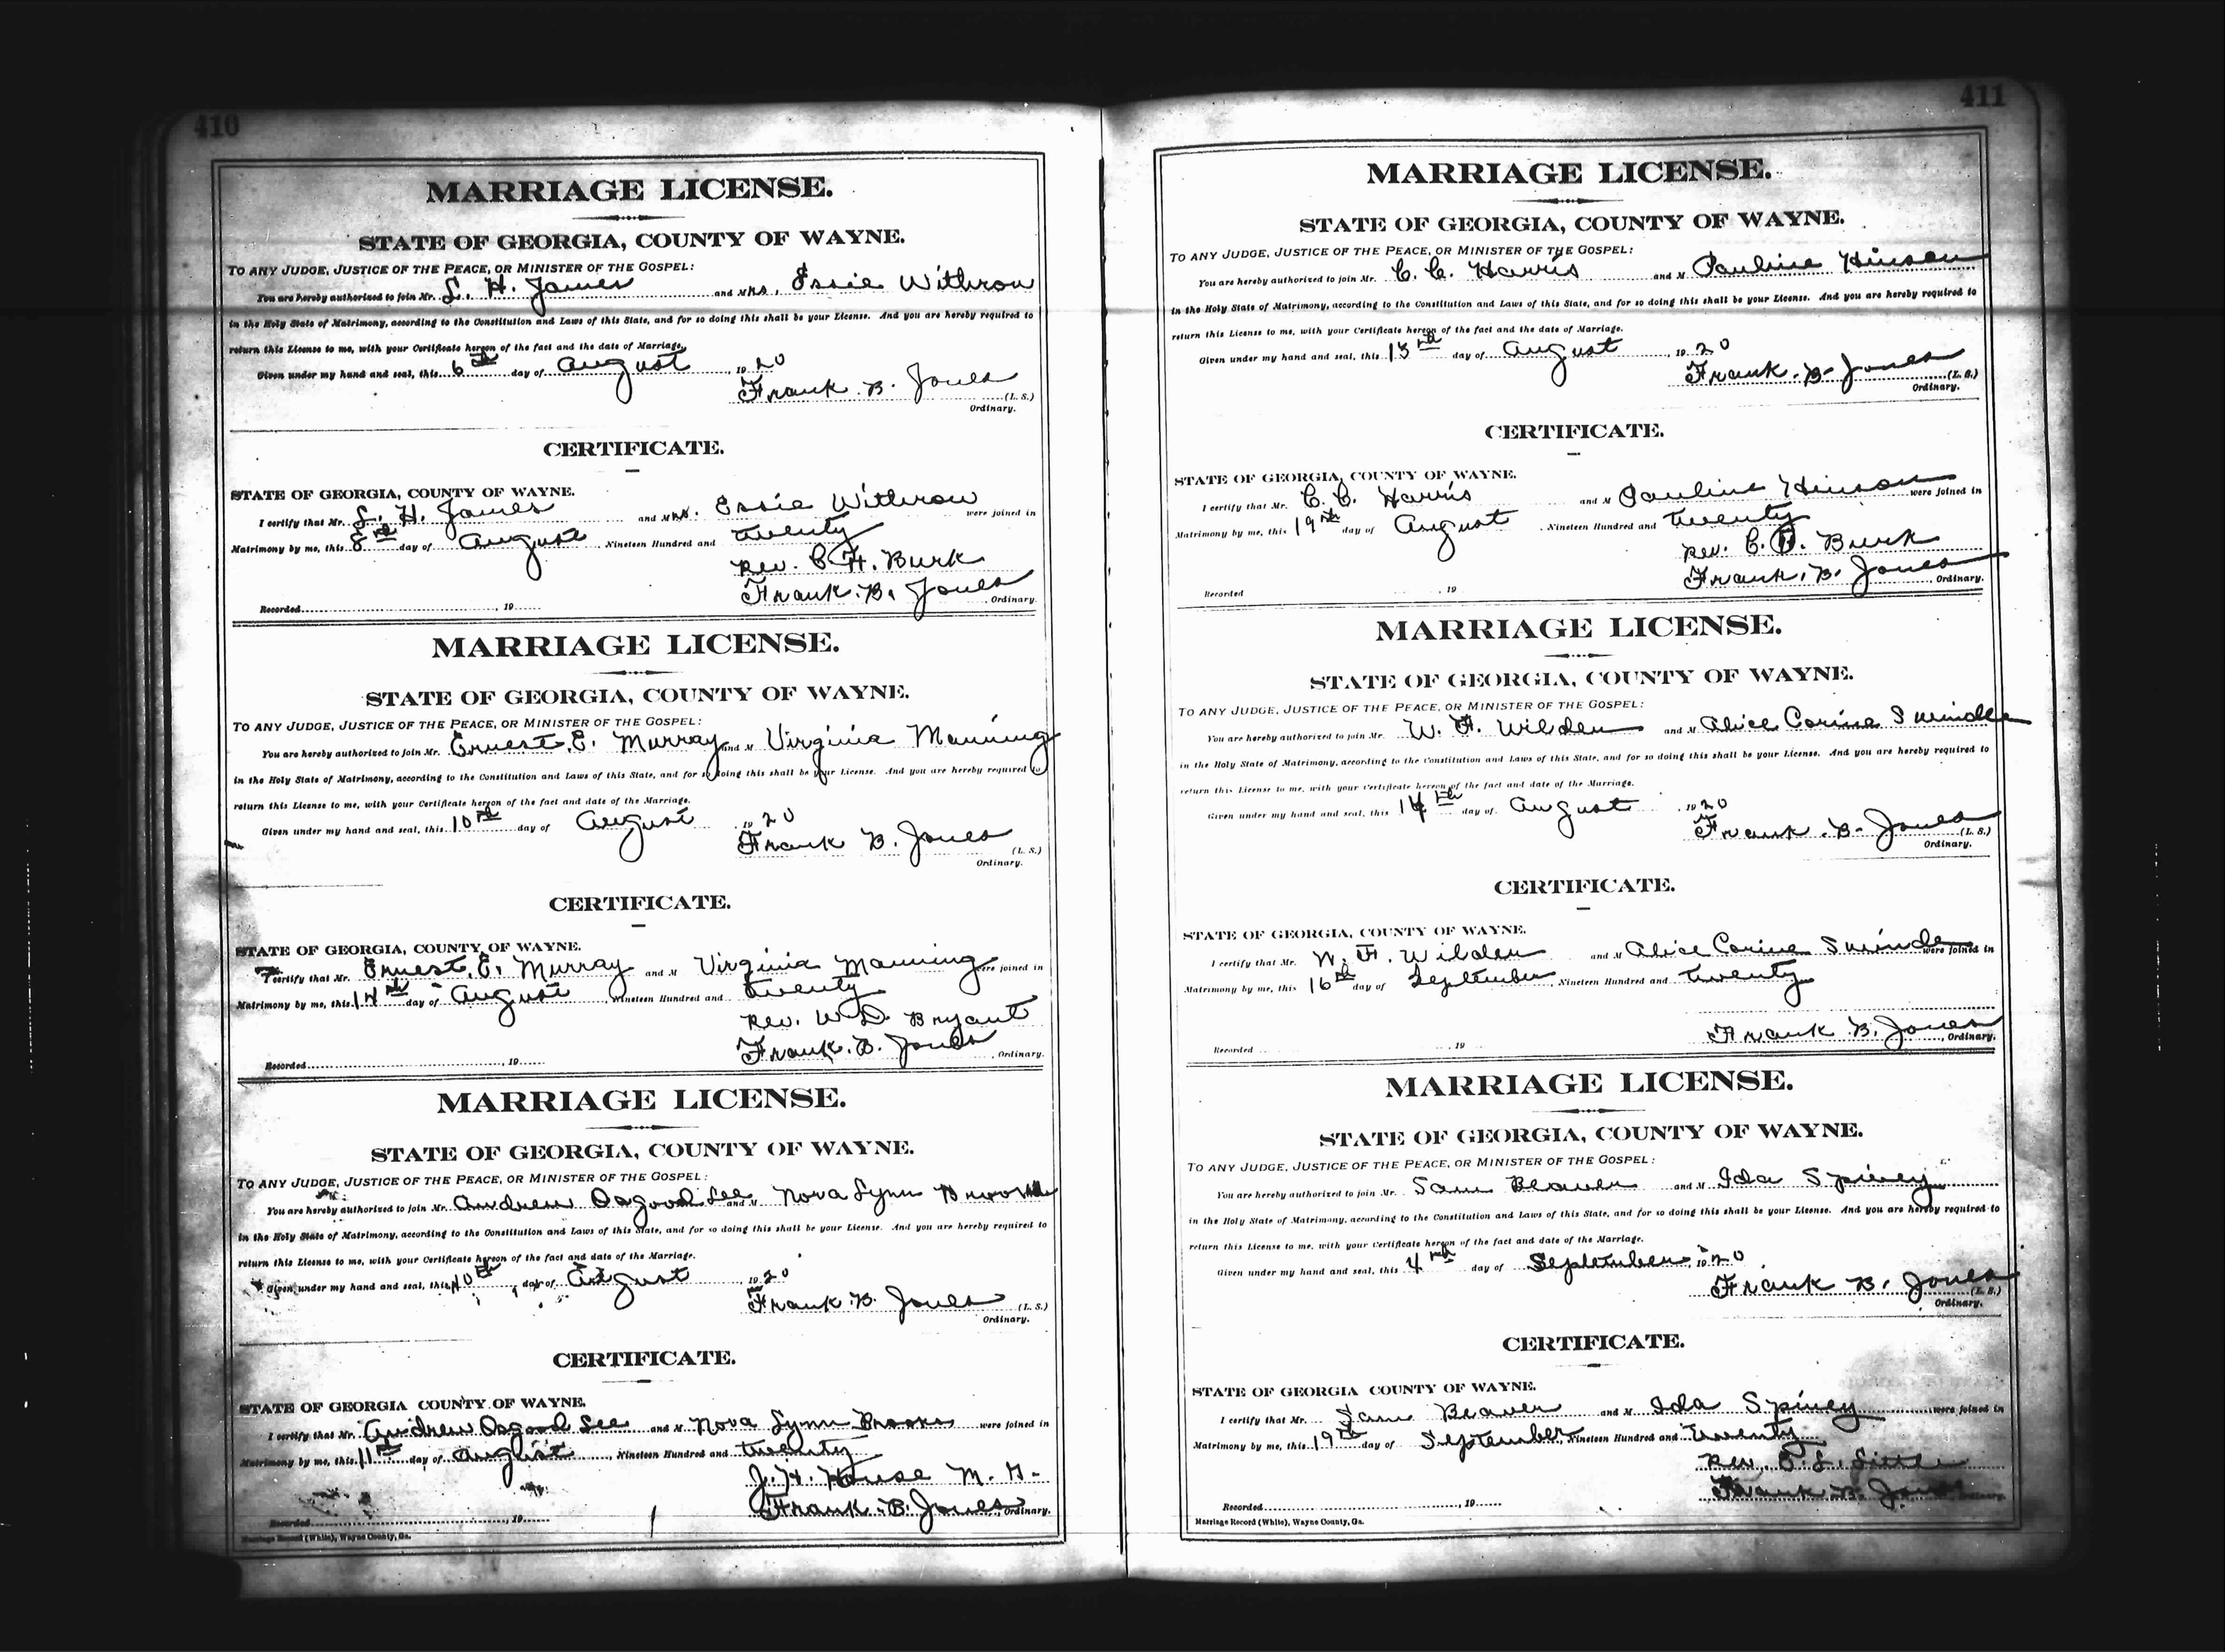 410
MARRIAGE LICENSE.
STATE OF GEORGIA, COUNTY OF WAYNE.
TO ANY JUDGE, JUSTICE OF THE PEACE, OR MINISTER OF THE GOSPEL:
You are hereby authorized to join Mr. L. H. James and Mrs. Essie Withrow
in the Holy State of Matrimony, according to the Constitution and Laws of this State, and for so doing this shall be your License. And you are hereby required to
return this License to me, with your Certificate hereon of the fact and the date of Marriage.
Given under my hand and seal, this 6th day of August, 1920
Frank B. Jones (L. S.)
Ordinary.
CERTIFICATE.
STATE OF GEORGIA, COUNTY OF WAYNE.
I certify that Mr. L. H. James and Mrs. Essie Withrow were joined in
Matrimony by me, this 8th day of August, Nineteen Hundred and twenty
Rev. C. H. Burk
Recorded 19 Frank B. Jones, Ordinary.
MARRIAGE LICENSE.
STATE OF GEORGIA, COUNTY OF WAYNE.
TO ANY JUDGE, JUSTICE OF THE PEACE, OR MINISTER OF THE GOSPEL:
You are hereby authorized to join Mr. Ernest E. Murray and M Virginia Manning
in the Holy State of Matrimony, according to the Constitution and Laws of this State, and for so doing this shall be your License. And you are hereby required to
return this License to me, with your Certificate hereon of the fact and date of the Marriage.
Given under my hand and seal, this 10th day of August, 1920
Frank B. Jones (L. S.)
Ordinary.
CERTIFICATE.
STATE OF GEORGIA, COUNTY OF WAYNE.
I certify that Mr. Ernest E. Murray and M Virginia Manning were joined in
Matrimony by me, this 14th day of August, Nineteen Hundred and twenty
Rev. W. D. Bryant
Recorded 19 Frank B. Jones, Ordinary.
MARRIAGE LICENSE.
STATE OF GEORGIA, COUNTY OF WAYNE.
TO ANY JUDGE, JUSTICE OF THE PEACE, OR MINISTER OF THE GOSPEL:
You are hereby authorized to join Mr. Andrew Osgood Lee and M Nova Lynn
in the Holy State of Matrimony, according to the Constitution and Laws of this State, and for so doing this shall be your License. And you are hereby required to
return this License to me, with your Certificate hereon of the fact and date of the Marriage.
Given under my hand and seal, this 10th day of August, 1920
Frank B. Jones (L. S.)
Ordinary.
CERTIFICATE.
STATE OF GEORGIA COUNTY OF WAYNE.
I certify that Mr. Andrew Osgood Lee and M Nova Lynn Brooks were joined in
Matrimony by me, this 11th day of August, Nineteen Hundred and twenty
J. H. House M. G.
Recorded 19 Frank B. Jones, Ordinary.
Marriage Record (White), Wayne County, Ga.
411
MARRIAGE LICENSE.
STATE OF GEORGIA, COUNTY OF WAYNE.
TO ANY JUDGE, JUSTICE OF THE PEACE, OR MINISTER OF THE GOSPEL:
You are hereby authorized to join Mr. C. C. Harris and M Pauline Hinson
in the Holy State of Matrimony, according to the Constitution and Laws of this State, and for so doing this shall be your License. And you are hereby required to
return this License to me, with your Certificate hereon of the fact and the date of Marriage.
Given under my hand and seal, this 13th day of August, 1920
Frank B. Jones (L. S.)
Ordinary.
CERTIFICATE.
STATE OF GEORGIA, COUNTY OF WAYNE.
I certify that Mr. C. C. Harris and M Pauline Hinson were joined in
Matrimony by me, this 19th day of August, Nineteen Hundred and twenty
Rev. C. Burk
Recorded 19 Frank B. Jones, Ordinary.
MARRIAGE LICENSE.
STATE OF GEORGIA, COUNTY OF WAYNE.
TO ANY JUDGE, JUSTICE OF THE PEACE, OR MINISTER OF THE GOSPEL:
You are hereby authorized to join Mr. W. F. Wilden and M Alice Corine Swindle
in the Holy State of Matrimony, according to the Constitution and Laws of this State, and for so doing this shall be your License. And you are hereby required to
return this License to me, with your Certificate hereon of the fact and date of the Marriage.
Given under my hand and seal, this 14th day of August, 1920
Frank B. Jones (L. S.)
Ordinary.
CERTIFICATE.
STATE OF GEORGIA, COUNTY OF WAYNE.
I certify that Mr. W. F. Wilden and M Alice Corine Swindle were joined in
Matrimony by me, this 16th day of September, Nineteen Hundred and twenty
Recorded 19 Frank B. Jones, Ordinary.
MARRIAGE LICENSE.
STATE OF GEORGIA, COUNTY OF WAYNE.
TO ANY JUDGE, JUSTICE OF THE PEACE, OR MINISTER OF THE GOSPEL:
You are hereby authorized to join Mr. Sam Beaver and M Ida Spivey
in the Holy State of Matrimony, according to the Constitution and Laws of this State, and for so doing this shall be your License. And you are hereby required to
return this License to me, with your Certificate hereon of the fact and date of the Marriage.
Given under my hand and seal, this 4th day of September, 1920
Frank B. Jones (L. S.)
Ordinary.
CERTIFICATE.
STATE OF GEORGIA COUNTY OF WAYNE.
I certify that Mr. Sam Beaver and M Ida Spivey were joined in
Matrimony by me, this 19th day of September, Nineteen Hundred and Twenty
Rev.
Recorded 19 Frank B. Jones, Ordinary.
Marriage Record (White), Wayne County, Ga.